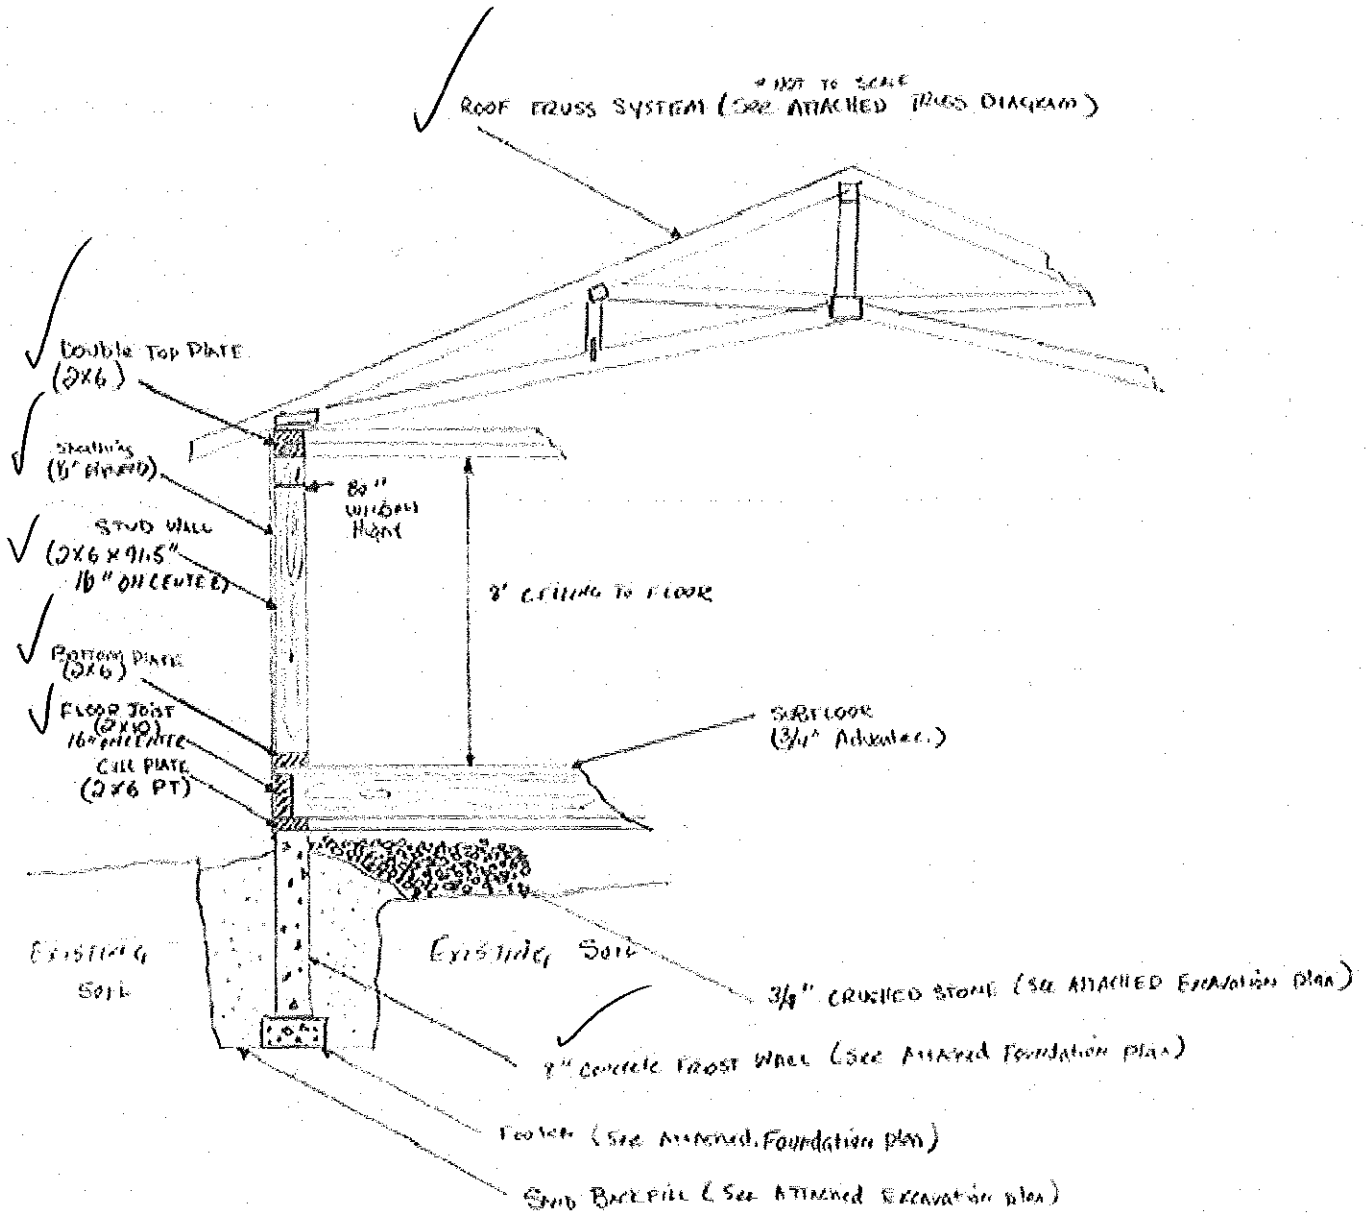 * NOT TO SCALE
ROOF TRUSS SYSTEM (SEE ATTACHED TRUSS DIAGRAM)
Double Top PLATE
(2X6)
Sheathing
STUD WALL
(2X6 X 91.5"
16" ON CENTER)
BOTTOM PLATE
(2X6)
FLOOR JOIST
(2X10)
16" ON CENTER
(2X6 PT)
80"
WINDOW
8' CEILING TO FLOOR
SUBFLOOR
(3/4" Advantec.)
EXISTING
SOIL
EXISTING SOIL
CRUSHED STONE (SEE ATTACHED EXCAVATION plan)
8" Concrete FROST WALL (SEE ATTACHED Foundation plan)
(SEE ATTACHED Foundation plan)
SAND BACKFILL (SEE ATTACHED EXCAVATION plan)